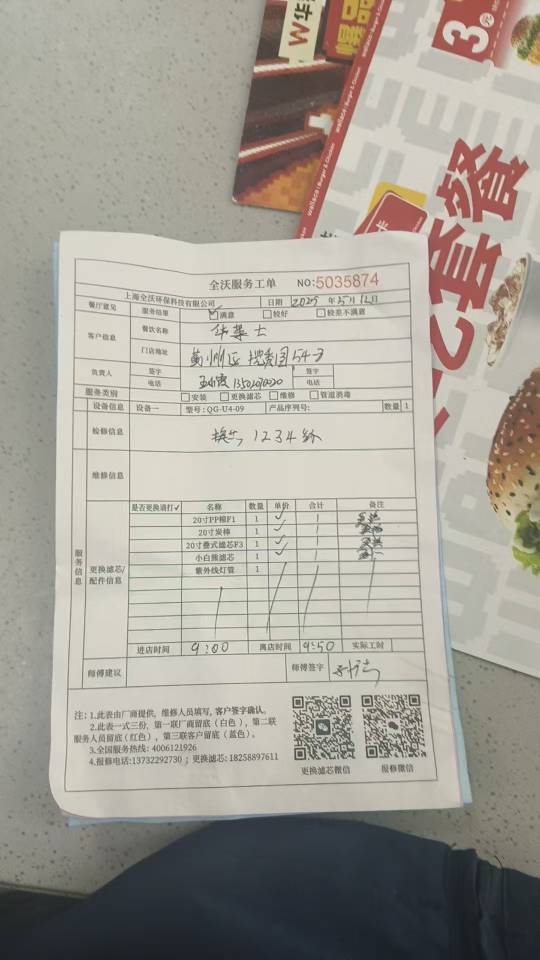 华
W
爆品
wallace | Burger & Chicken
3元
wallace | Burger & Chicken
wallace | Burger & Chicken
套餐
全沃服务工单 NO:5035874
上海全沃环保科技有限公司 日期 2025年5月12日
餐厅意见 服务结果 ☑满意 □较好 □较差不满意
客户信息 餐饮名称 华莱士
门店地址 54-3
负责人 签字 签字
电话 电话
服务类别 □安装 □更换滤芯 □维修 □管道消毒
设备信息 设备一 型号:QG-U4-09 产品序列号: 数量 1
检修信息 换芯 1234级
维修信息
服务信息
更换滤芯/配件信息
是否更换请打✓ 名称 数量 单价 合计 备注
20寸PP棉F1 1 ✓
20寸炭棒 1 ✓
20寸叠式滤芯F3 1 ✓
小白熊滤芯 1 ✓
紫外线灯管 1
进店时间 9:00 离店时间 9:50 实际工时
师傅建议 师傅签字
注:1.此表由厂商提供,维修人员填写,客户签字确认。
2.此表一式三份,第一联厂商留底(白色),第二联
服务人员留底(红色),第三联客户留底(蓝色)。
3.全国服务热线:4006121926
4.报修电话:13732292730;更换滤芯:18258897611
更换滤芯微信 报修微信